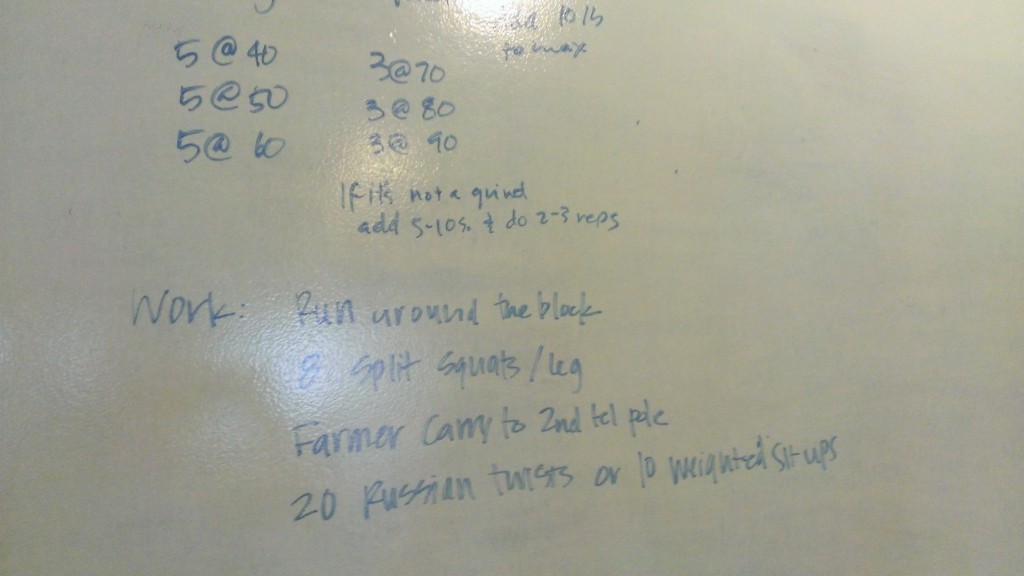 add 10 lb
to max
5 @ 40
5 @ 50
5 @ 60
3 @ 70
3 @ 80
3 @ 90
If it's not a grind
add 5-10s. & do 2-3 reps
Work: Run around the block
8 split squats / leg
Farmer Carry to 2nd tel pole
20 Russian twists or 10 weighted sit-ups